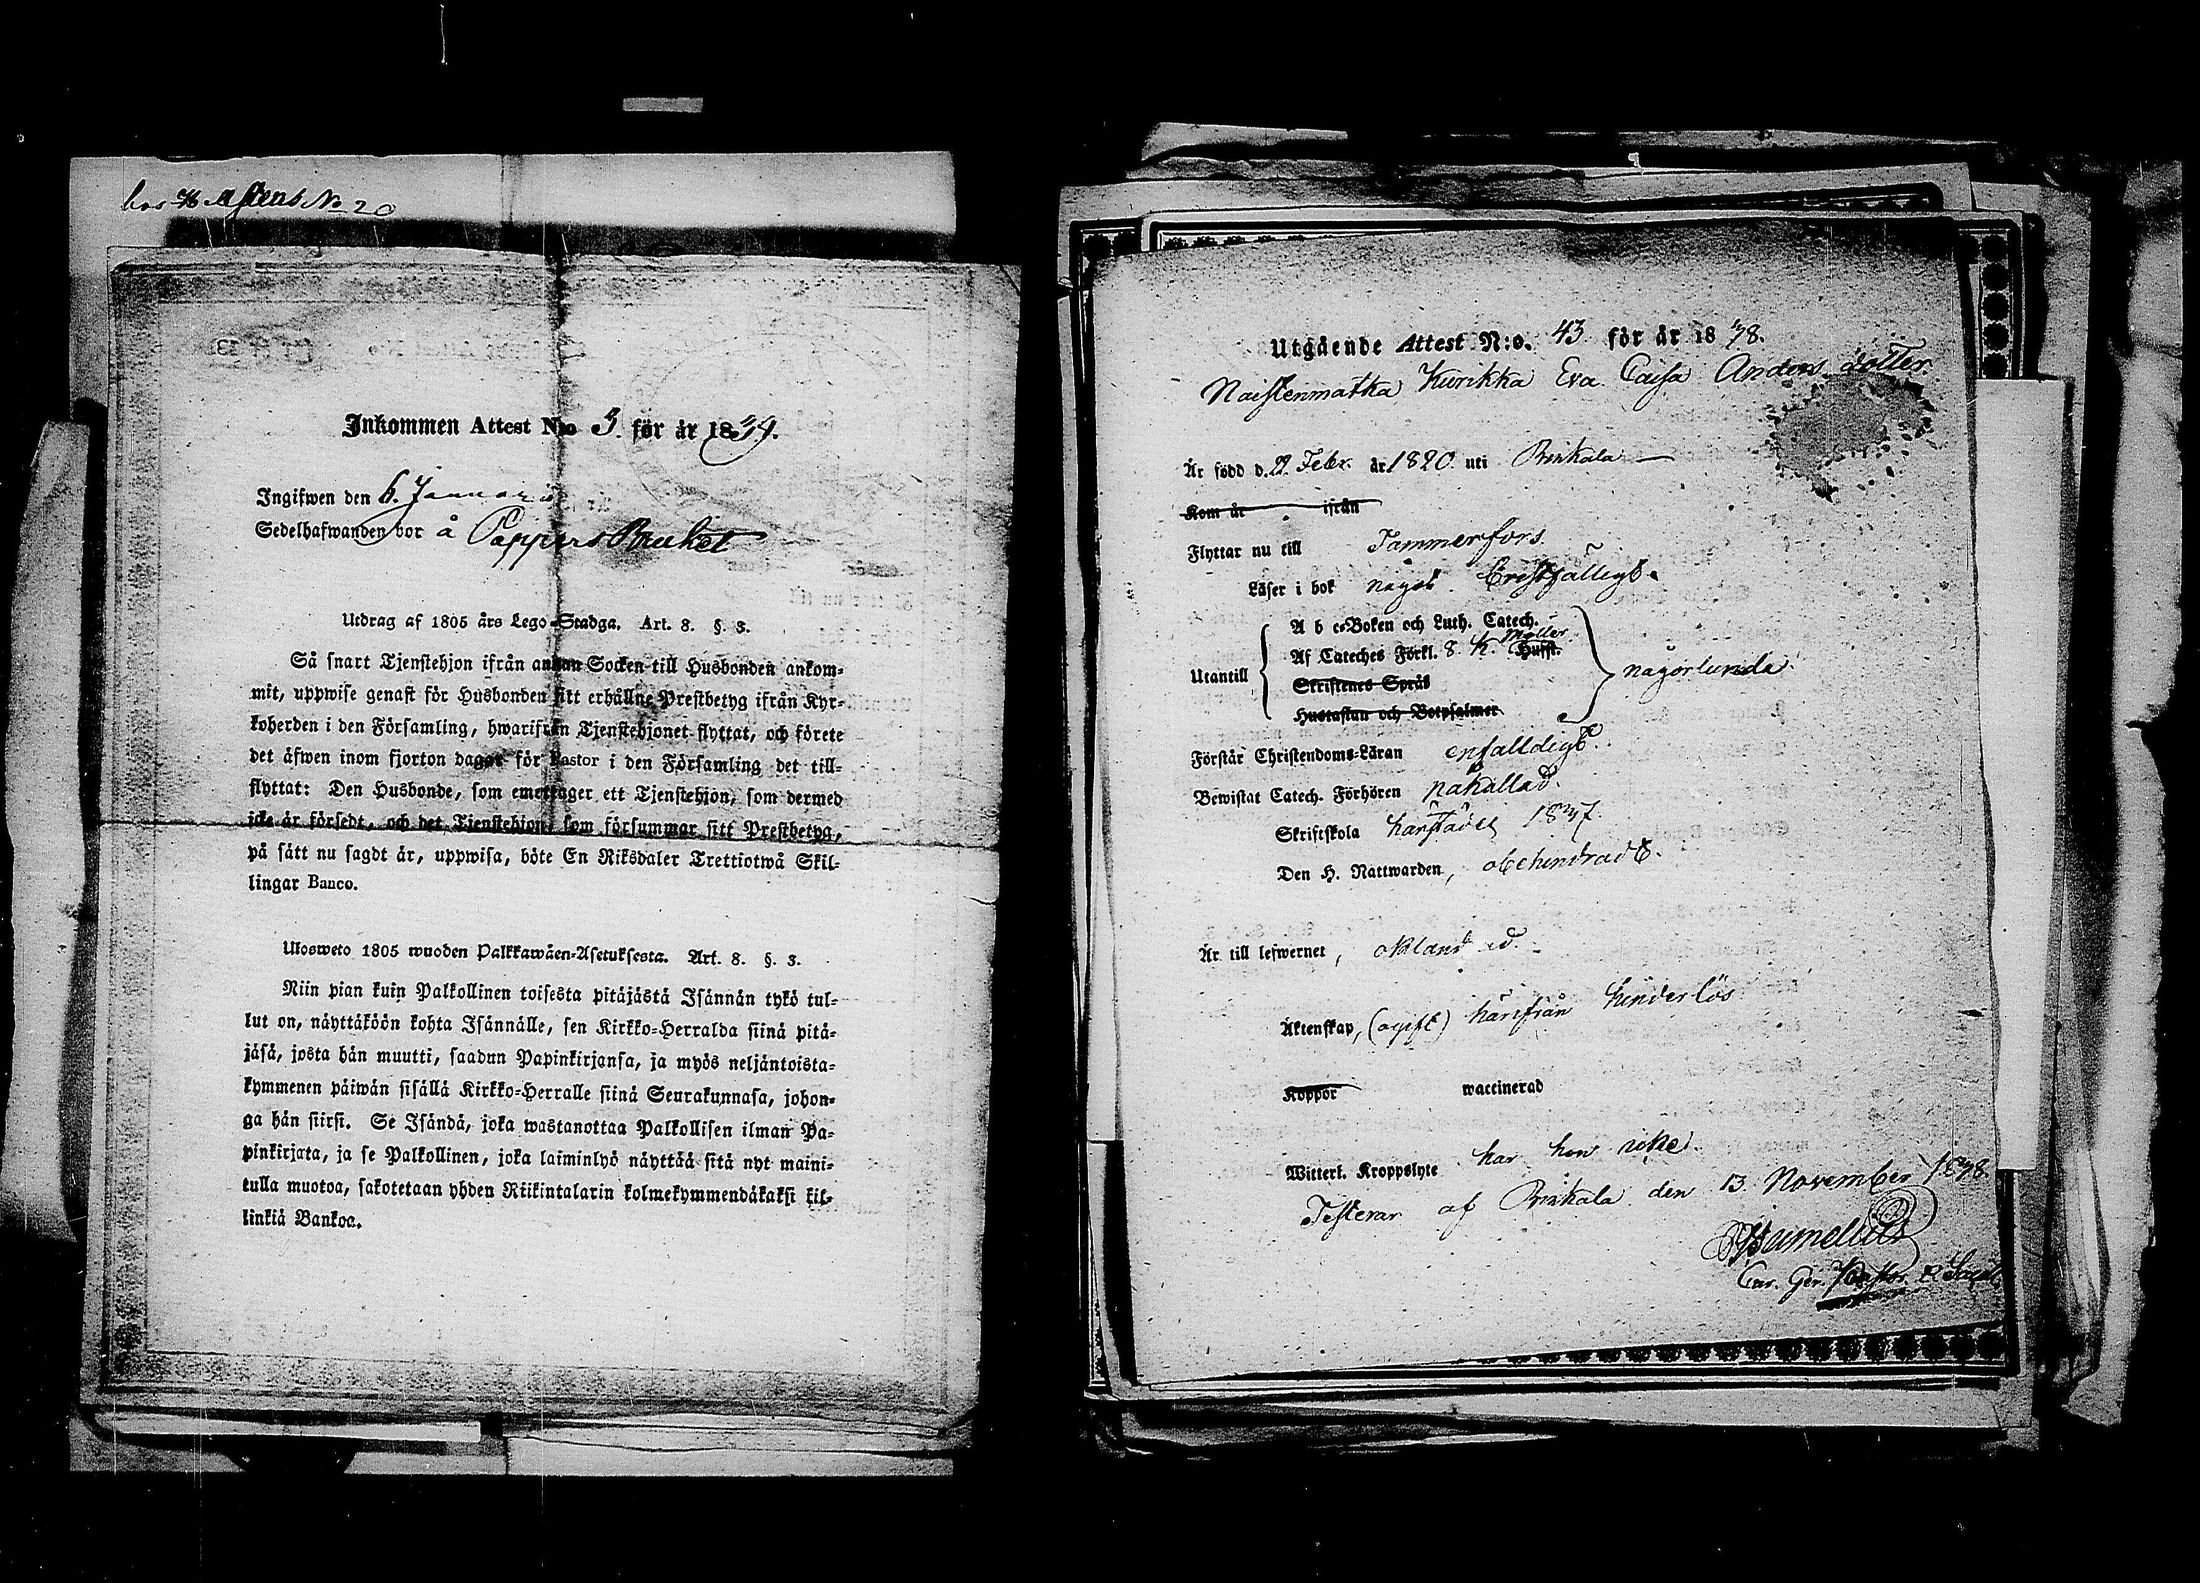 hos H Astens No 20
Inkommen Attest N:o 3. för år 1839.
Ingifwen den 6. Januari
Sedelhafwanden bor å Pappers Bruket
Utdrag af 1805 års Lego-Stadga. Art. 8. §. 3.
Så snart Tjenstehjon ifrån annan Socken till Husbonden ankom-
mit, uppwise genast för Husbonden sitt erhållne Prestbetyg ifrån Kyr-
koherden i den Församling, hwarifrån Tjenstehjonet flyttat, och förete
det äfwen inom fjorton dagar för Pastor i den Församling det till-
flyttat: Den Husbonde, som emottager ett Tjenstehjon, som dermed
icke är försedt, och det Tjenstehjon, som försummar sitt Prestbetyg,
på sätt nu sagdt är, uppwisa, böte En Riksdaler Trettiotwå Skil-
lingar Banco.
Ulosweto 1805 wuoden Palkkawäen-Asetuksesta. Art. 8. §. 3.
Niin pian kuin Palkollinen toisesta pitäjästä Isännän tykö tul-
lut on, näyttäköön kohta Isännälle, sen Kirkko-Herralda siinä pitä-
jäsä, josta hän muutti, saadun Papinkirjansa, ja myös neljäntoista-
kymmenen päiwän sisällä Kirkko-Herralle siinä Seurakunnasa, johon-
ga hän siirsi. Se Isändä, joka wastanottaa Palkollisen ilman Pa-
pinkirjata, ja se Palkollinen, joka laiminlyö näyttää sitä nyt maini-
tulla muotoa, sakotetaan yhden Riikintalarin kolmekymmendäkaksi kil-
linkiä Bankoa.
Utgående Attest N:o. 43 för år 1838.
Naistenmatka Kurikka Eva Caisa Anders dotter
Är född d. 22 Febr. år 1820 uti Birkala
Kom år ifrån
Flyttar nu till Tammerfors
Läser i bok något bristfälligt.
Utantill
A b c-Boken och Luth. Catech.
Af Cateches Förkl. 8 K. Möller Husst.
Skriftenes Språk
Hustaflan och Botpsalmer
någorlunda
Förstår Christendoms-Läran enfalldigt.
Bewistat Catech. Förhören påkallad.
Skriftskola härstädes 1837.
Den H. Nattwarden, obehindradt.
Är till lefwernet, oklandrad.
Äktenskap, (ogift) härifrån hinderlös
Koppor waccinerad
Witterl. Kroppslyte har hon icke.
Testerar af Birkala den 13 November 1838